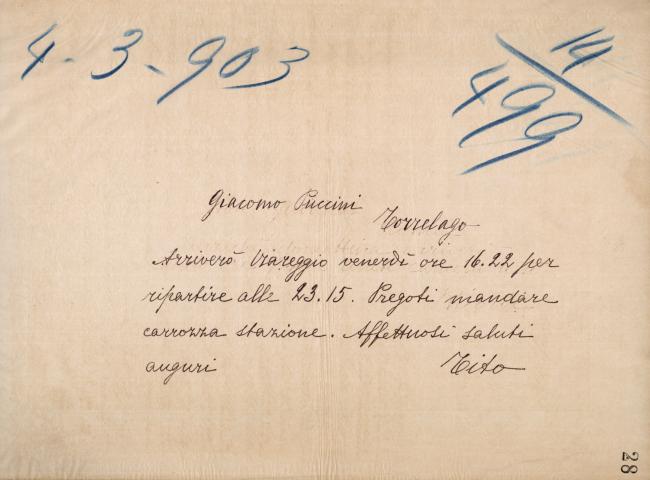 4-3-903
14
499
Giacomo Puccini
Torrelago
Arriverò Viareggio venerdì ore 16.22 per
ripartire alle 23.15. Pregoti mandare
carrozza stazione. Affettuosi saluti
auguri Tito
28